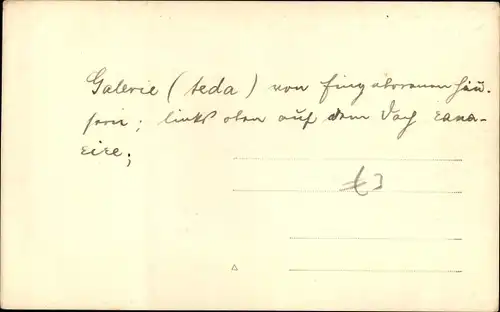 Galerie (teda) von Eingeborenenhäu-
sern; links oben auf dem Dach rana-
eire;
£3